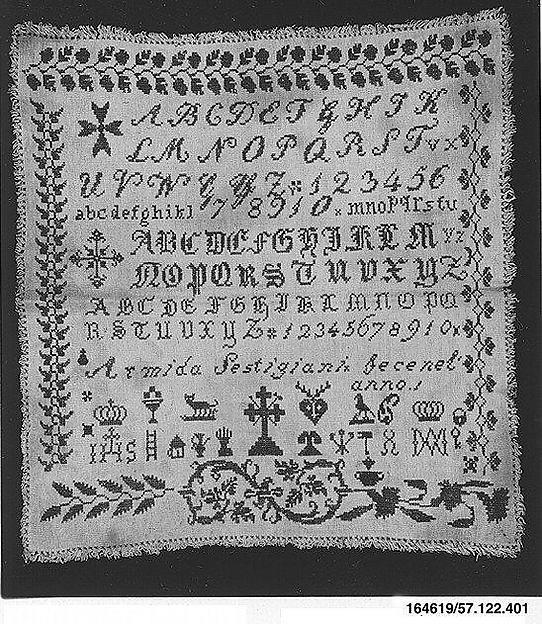 A B C D E F G H I K
L M N O P Q R S T v x
U V W X Y Z * 1 2 3 4 5 6
abcdefghikl 7 8 9 1 0 x mnopqrstu
A B C D E F G H I K L M V Z
N O P Q R S T U V X Y Z
A B C D E F G H I K L M N O P Q
R S T U V X Y Z * 1 2 3 4 5 6 7 8 9 1 0 x
Armida Sestigiani fece nel
anno 1
IHS M
164619/57.122.401